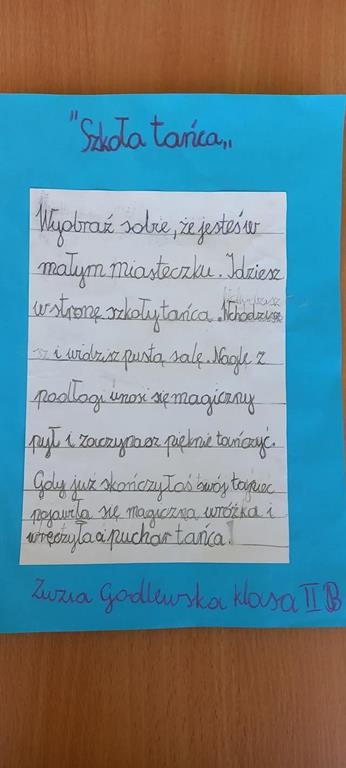 "Szkoła tańca„
Wyobraź sobie, że jesteś w
małym miasteczku. Idziesz
w stronę szkoły tańca. Wchodzisz
i widzisz pustą salę. Nagle z
podłogi unosi się magiczny
pył i zaczynasz pięknie tańczyć.
Gdy już skończyłaś swój taniec
pojawiła się magiczna wróżka i
wręczyła ci puchar tańca!
Zuzia Godlewska klasa II B